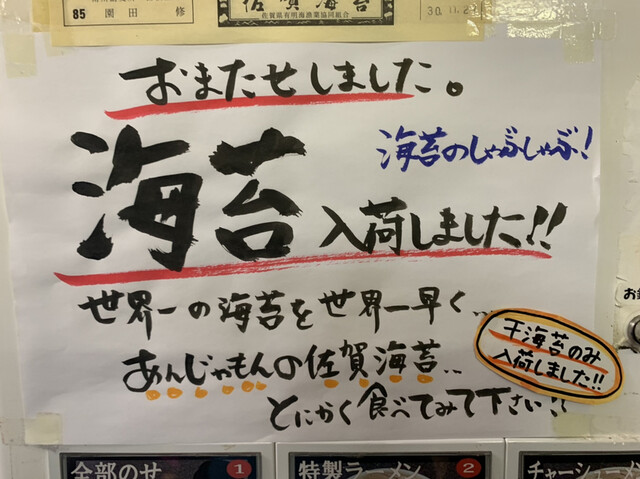 85 園田 修
佐賀海苔
佐賀県有明海漁業協同組合
30.11.2
おまたせしました。
海苔のしゃぶしゃぶ!
海苔 入荷しました!!
世界一の海苔を世界一早く..
あんじゃもんの佐賀海苔..
とにかく食べてみて下さい!!
干海苔のみ
入荷しました!!
全部のせ 1
特製ラーメン 2
チャーシュー